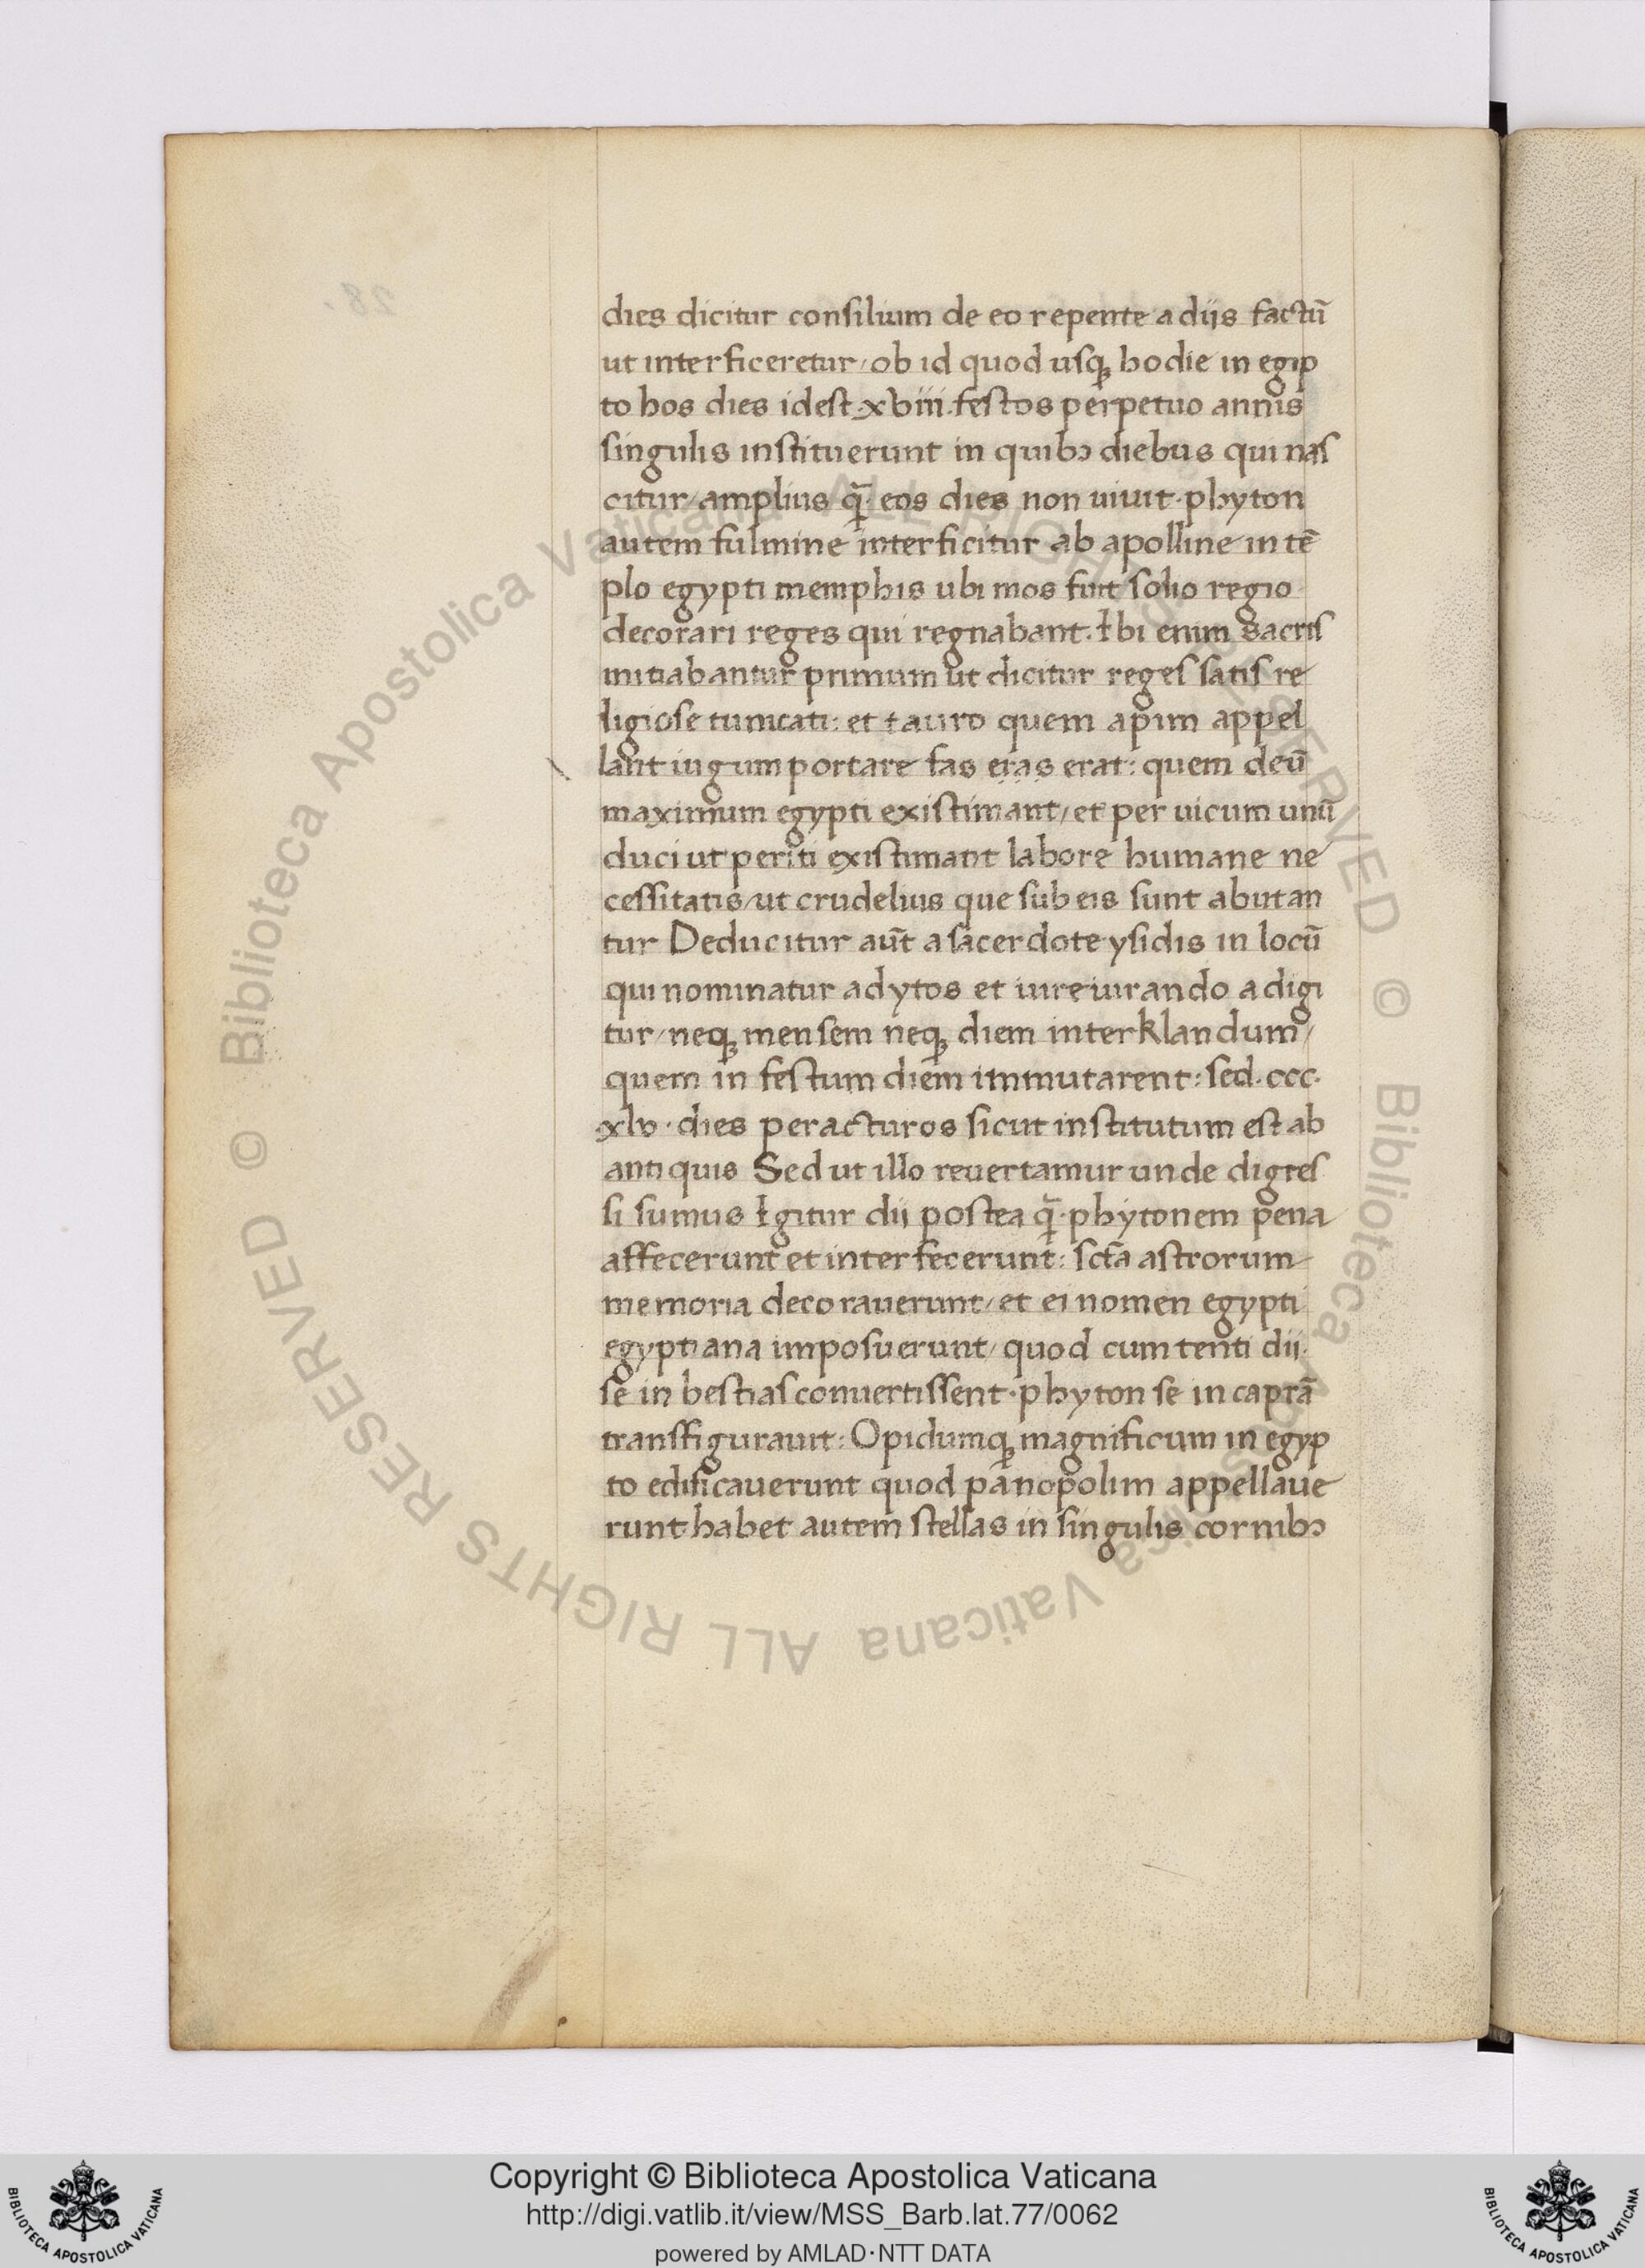 dies dicitur consilium de eo repente a diis factū
ut interficeretur / ob id quod usq; hodie in egip
to hos dies idest · xviii · festos perpetuo annis
singulis instituerunt in quibꝰ diebus qui nas
citur / amplius q̄ · eos dies non uiuit · phyton
autem fulmine interficitur ab apolline in tē
plo egypti memphis ubi mos fuit solio regio
decorari reges qui regnabant . Ibi enim sacris
initiabantur primum ut dicitur reges satis re
ligiose tunicati : et tauro quem apim appel
lant iugum portare fas eras erat : quem deū
maximum egypti existimant / et per uicum unū
duci ut periti existimant labore humane ne
cessitatis / ut crudelius que sub eis sunt abutan
tur Deducitur aūt a sacerdote ysidis in locū
qui nominatur adytos et iureiurando adigi
tur / neq; mensem neq; diem interklandum /
quem in festum diem immutarent : sed · ccc ·
xlv · dies peracturos sicut institutum est ab
antiquis Sed ut illo reuertamur unde digres
si sumus Igitur dii postea q̄ · phytonem pena
affecerunt et interfecerunt : sctā astrorum
memoria decorauerunt / et ei nomen egypti
egyptiana imposuerunt / quod cum tenti dii ·
se in bestias conuertissent · phyton se in caprā
transfigurauit : Opidumq; magnificum in egyp
to edificauerunt quod panopolim appellaue
runt habet autem stellas in singulis cornibꝰ
28
© Biblioteca Apostolica Vaticana ALL RIGHTS RESERVED © Biblioteca Apostolica Vaticana ALL RIGHTS RESERVED
Copyright © Biblioteca Apostolica Vaticana
http://digi.vatlib.it/view/MSS_Barb.lat.77/0062
powered by AMLAD·NTT DATA
BIBLIOTECA APOSTOLICA VATICANA
BIBLIOTECA APOSTOLICA VATICANA